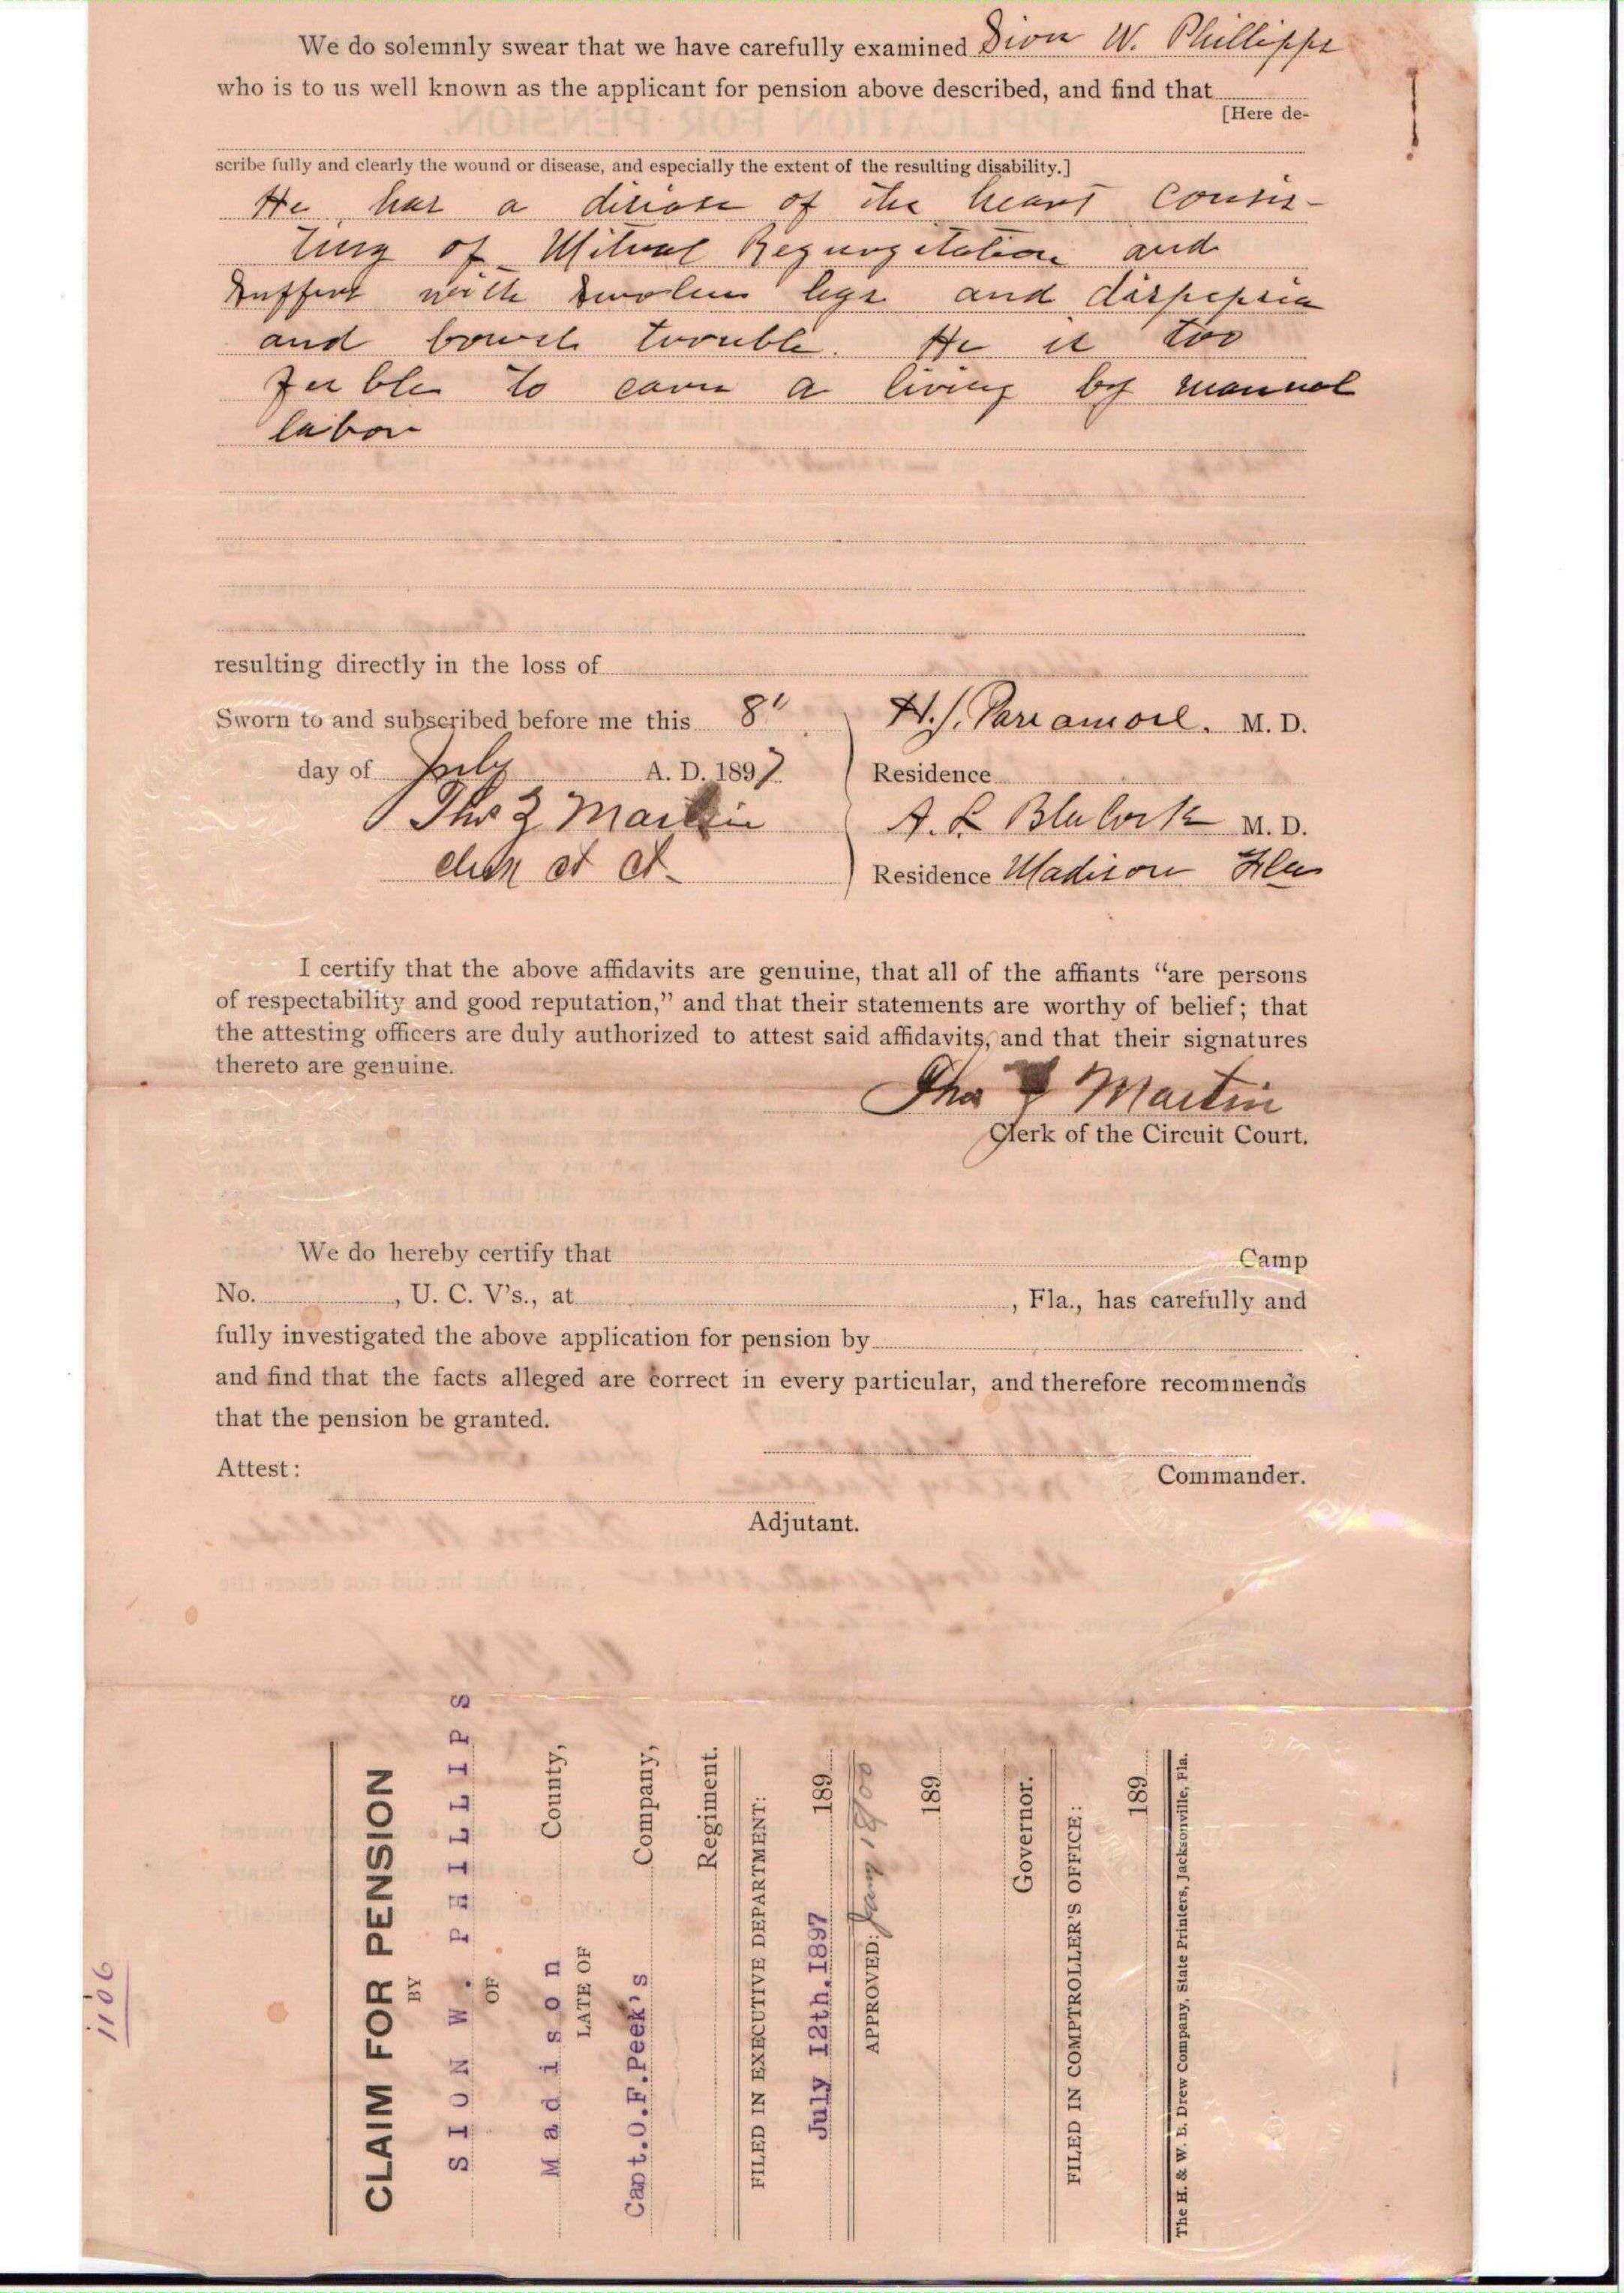 We do solemnly swear that we have carefully examined Sion W. Phillipps
who is to us well known as the applicant for pension above described, and find that
[Here de-
scribe fully and clearly the wound or disease, and especially the extent of the resulting disability.]
He has a disease of the heart consis-
ting of Mitral Regurgitation and
suffers with swolen legs and dispepsia
and bowels trouble. He is too
feeble to earn a living by manual
labor
resulting directly in the loss of
Sworn to and subscribed before me this 8" H. J. Parramore. M. D.
day of July A. D. 1897 Residence
Thos Martin A. L. Blalock M. D.
clerk ct ct. Residence Madison Fla
I certify that the above affidavits are genuine, that all of the affiants “are persons
of respectability and good reputation,” and that their statements are worthy of belief; that
the attesting officers are duly authorized to attest said affidavits, and that their signatures
thereto are genuine.
Thos Martin
Clerk of the Circuit Court.
We do hereby certify that Camp
No. , U. C. V's., at , Fla., has carefully and
fully investigated the above application for pension by
and find that the facts alleged are correct in every particular, and therefore recommends
that the pension be granted.
Attest:
Commander.
Adjutant.
1106
CLAIM FOR PENSION
BY
SION W. PHILLIPS
OF
Madison County,
LATE OF
Capt.O.F.Peek's Company,
Regiment.
FILED IN EXECUTIVE DEPARTMENT:
July 12th.1897 189
APPROVED: Jany 1 1800
189
Governor.
FILED IN COMPTROLLER'S OFFICE:
189
The H. & W. B. Drew Company, State Printers, Jacksonville, Fla.